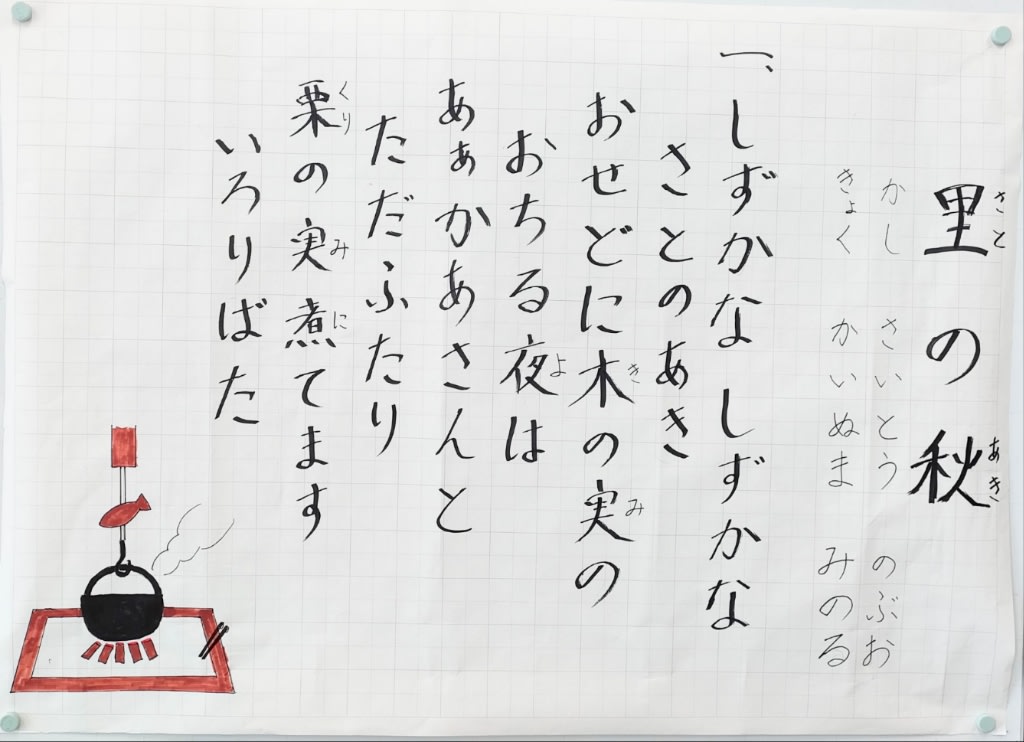 里の秋
さと
あき
かし さいとう のぶお
きょく かいぬま みのる
一、しずかな しずかな
さとのあき
おせどに木の実の
き
み
おちる夜は
よ
あぁかあさんと
ただふたり
栗の実煮てます
くり
み
に
いろりばた